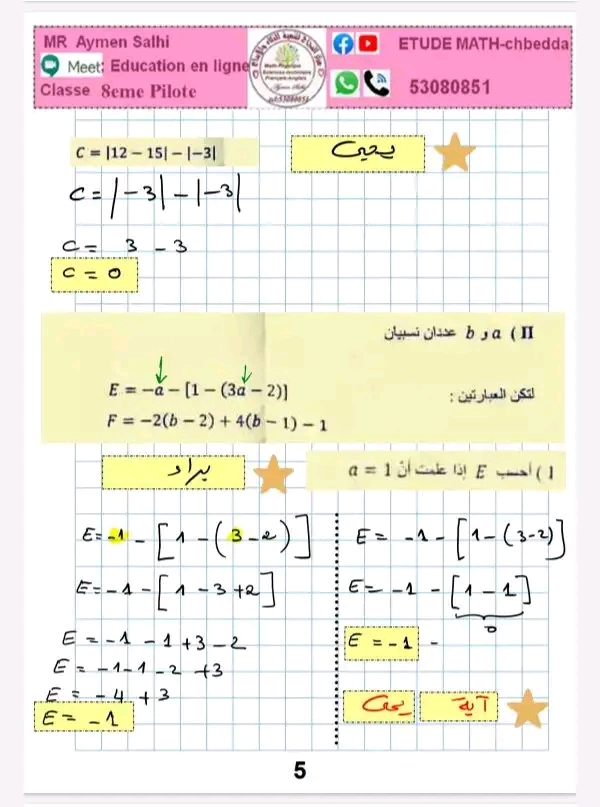 MR Aymen Salhi
Meet: Education en ligne
Classe 8eme Pilote
ETUDE MATH-chbedda
53080851
C = |12 − 15| − |−3|
يحيى
C = |−3| − |−3|
C = 3 − 3
C = 0
II ) a و b عددان نسبيان
لتكن العبارتين :
E = −a − [1 − (3a − 2)]
F = −2(b − 2) + 4(b − 1) − 1
1 ) أحسب E إذا علمت أنّ a = 1
E = −1 − [1 − (3 − 2)]
E = −1 − [1 − 3 + 2]
E = −1 − 1 + 3 − 2
E = −1 − 1 − 2 + 3
E = −4 + 3
E = −1
E = −1 − [1 − (3 − 2)]
E = −1 − [1 − 1]
0
E = −1 −
يحيى
آية
5